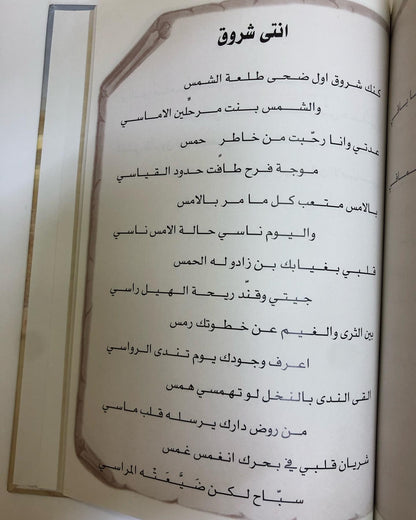 انتي شروق
كنك شروق اول ضحى طلعة الشمس
والشمس بنت مرحلين الاماسي
عدتي وانا رحّبت من خاطر حمس
موجة فرح طافت حدود القياسي
بالامس متعب كل ما مر بالامس
واليوم ناسي حالة الامس ناسي
قلبي بغيابك بن زادو له الحمس
جيتي وقنّد ريحة الهيل راسي
بين الثرى والغيم عن خطوتك رمس
اعرف وجودك يوم تندى الرواسي
القى الندى بالنخل لو تهمسي همس
من روض دارك يرسله قلب ماسي
شريان قلبي في بحرك انغمس غمس
سبّاح لكن ضَيَّعَتْه المراسي